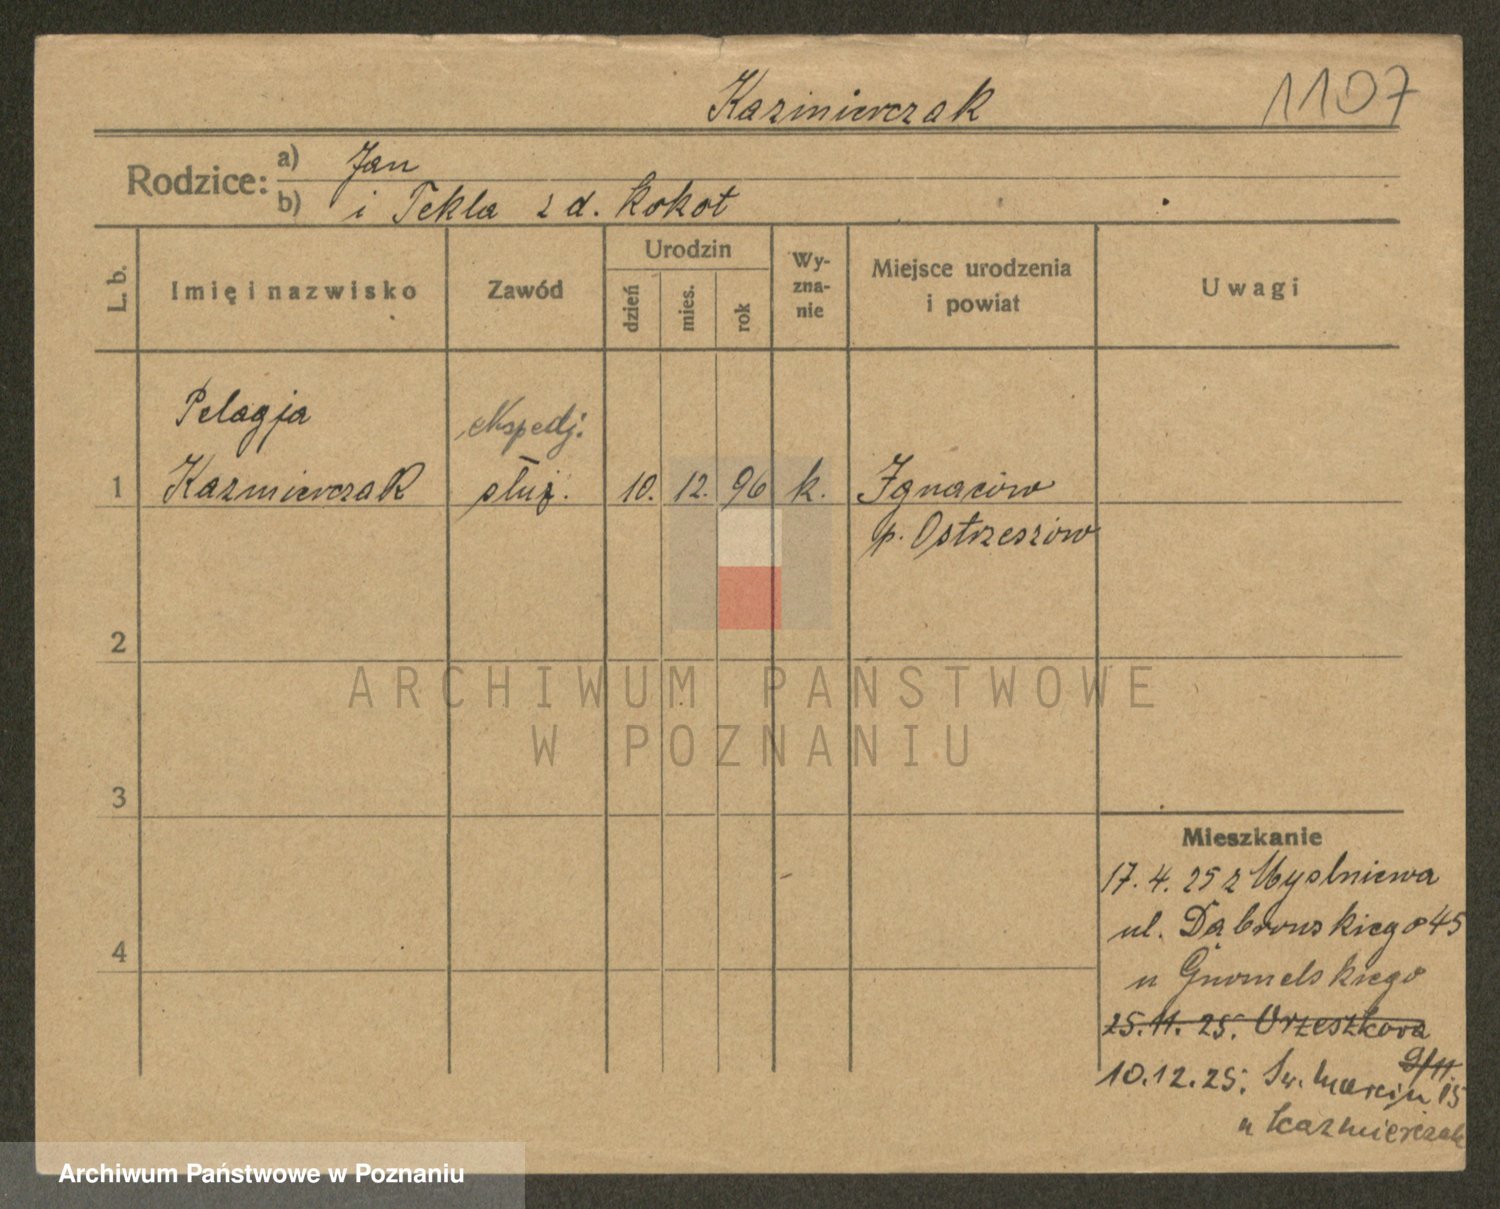 Kazmierczak 1107
Rodzice: a) Jan
b) i Tekla z d. Kokot
L. b.
Imię i nazwisko
Zawód
Urodzin
dzień
mies.
rok
Wy-
zna-
nie
Miejsce urodzenia
i powiat
Uwagi
Pelagja ekspedj.
1 Kazmierczak służ. 10. 12. 96 k. Ignaców
p. Ostrzeszów
2
3
4
ARCHIWUM PAŃSTWOWE
W POZNANIU
Mieszkanie
17. 4. 25 z Myslniewa
ul. Dąbrowskiego 45
u
25. 11. 25. Orzeszkova
9/11.
10.12.25. Św. Marcin 15
u Kazmierczak
Archiwum Państwowe w Poznaniu